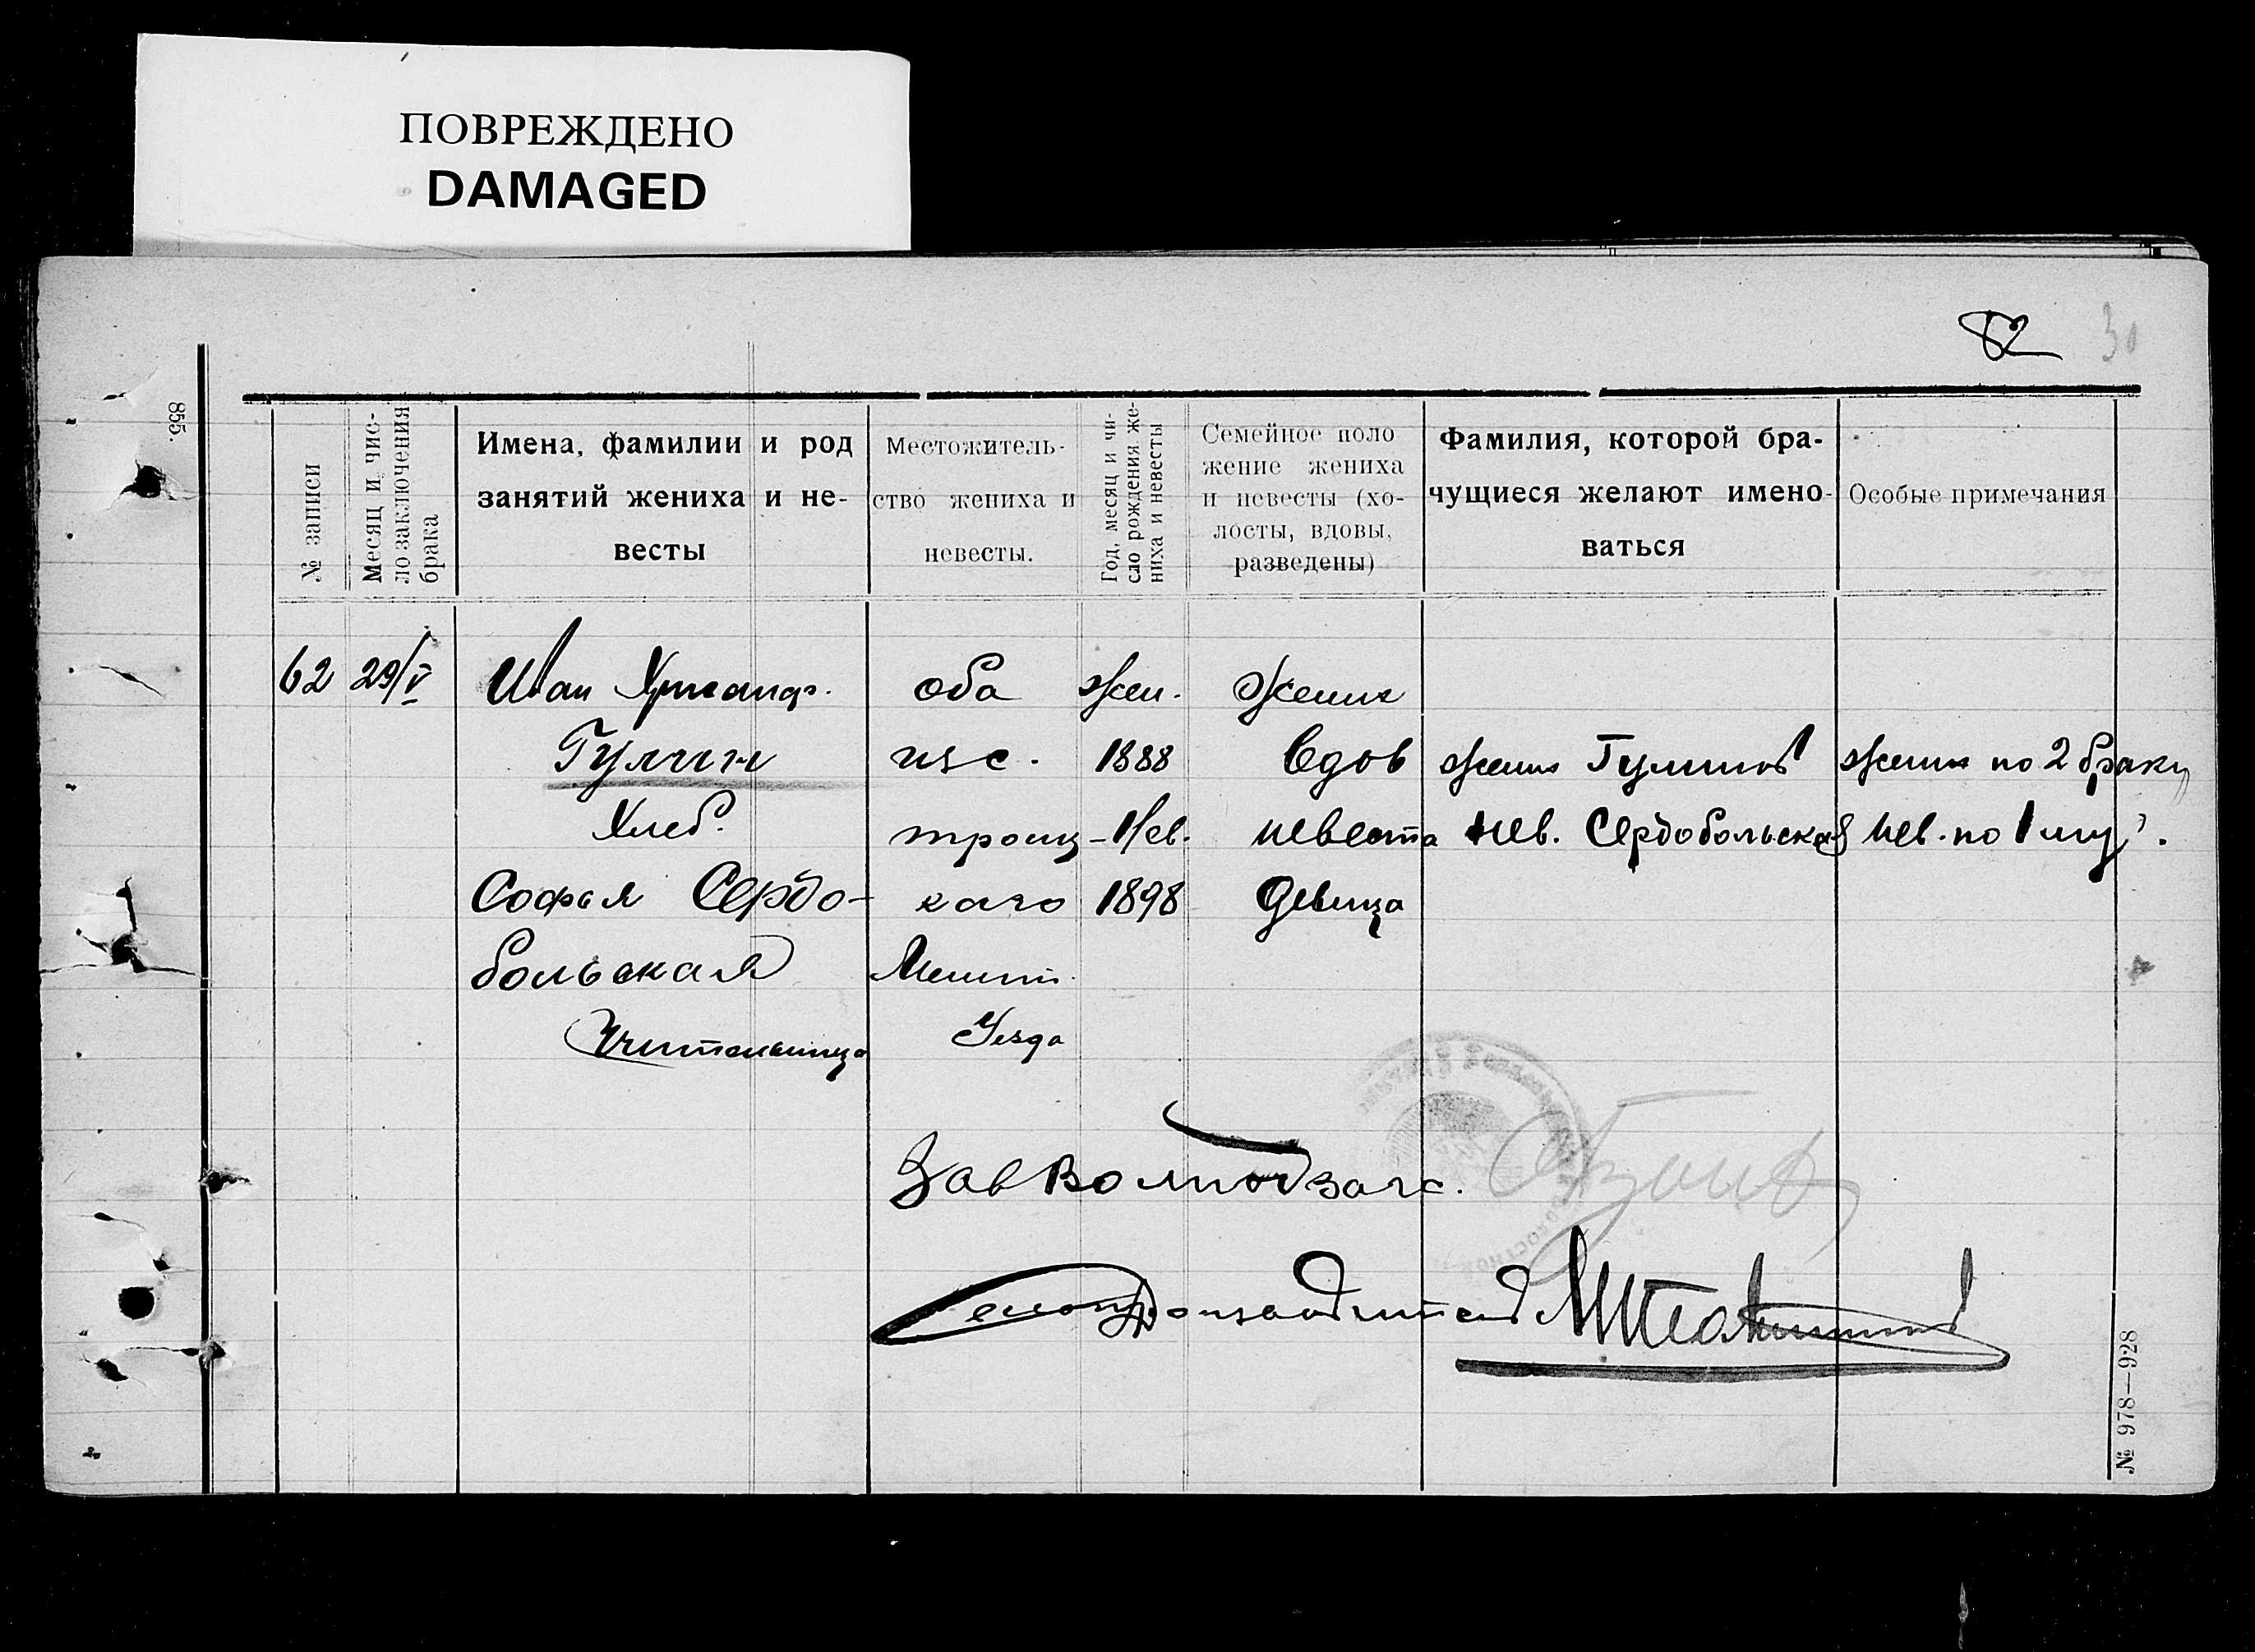 ПОВРЕЖДЕНО
DAMAGED
82
30
855.
№ записи
Месяц и чис-
ло заключения
брака
Имена, фамилии и род
занятий жениха и не-
весты
Местожитель-
ство жениха и
невесты.
Год, месяц и чи-
сло рождения же-
ниха и невесты
Семейное поло
жение жениха
и невесты (хо-
лосты, вдовы,
разведены)
Фамилия, которой бра-
чущиеся желают имено-
ваться
Особые примечания
62
29/V
Иван
Гулин
Хлеб.
Софья Сердо-
больская
Учительница
оба
изс.
троиц-
каго
Мешт.
Уезда
Жен.
1888
Нев.
1898
Жених
вдов
невеста
девица
жених Гулинов
нев. Сердобольская
жених по 2 браку
нев. по 1му.
Завволподзагс.
Делопроизводитель
№ 978—928